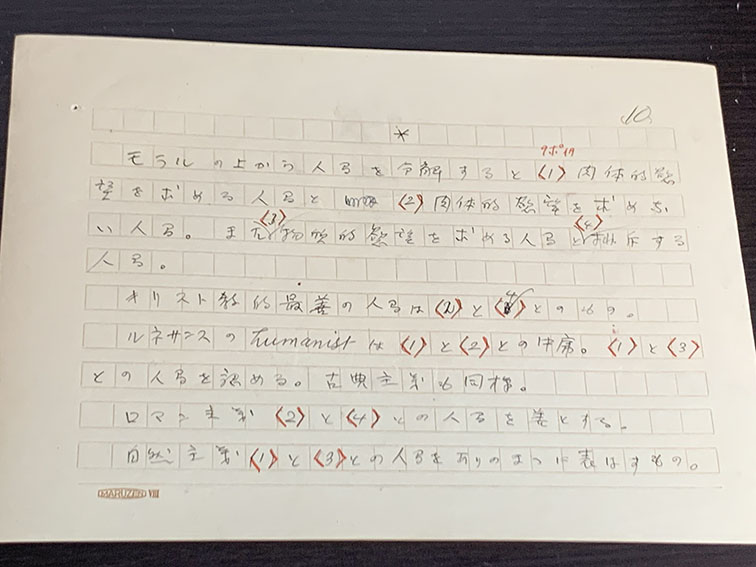 10.
*
9ポイク
モラルの上から人間を分解すると〈1〉肉体的慾
望を求める人間と〈2〉肉体的慾望を求めな
い人間。また〈3〉物質的慾望を求める人間と〈4〉排斥する
人間。
キリスト教的最善の人間は〈2〉と〈4〉とのもの。
ルネサンスのhumanistは〈1〉と〈2〉との中庸。〈1〉と〈3〉
との人間を認める。古典主義も同様。
ロマン主義〈2〉と〈4〉との人間を善とする。
自然主義〈1〉と〈3〉との人間をありのまゝに表はすもの。
MARUZEN VIII